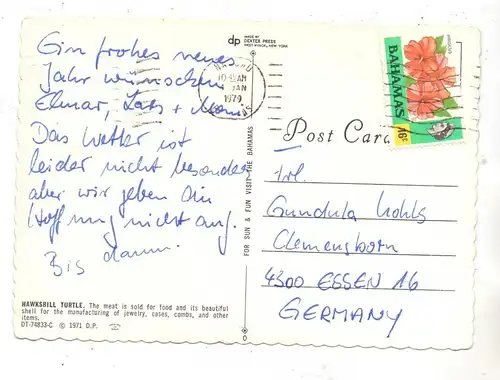 Ein frohes neues
Jahr wünschen
Elmar, Lars + Mama
Das Wetter ist
leider nicht besonders
aber wir geben die
Hoffnung nicht auf.
Bis dann.
HAWKSBILL TURTLE. The meat is sold for food and its beautiful
shell for the manufacturing of jewelry, cases, combs, and other
items.
DT-74833-C © 1971 D.P.
dp
MADE BY
DEXTER PRESS
WEST NYACK, NEW YORK
FOR SUN & FUN VISIT THE BAHAMAS
NASSAU
AM
JAN
1979
BAHAMAS
16c
Post Card
Frl.
Gundula Kohls
Clemensborn
4300 ESSEN 16
GERMANY